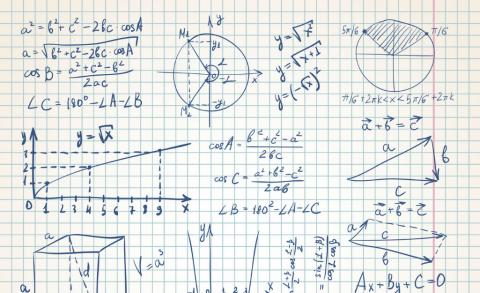 a² = b² + c² - 2bc cosA
a = √b² + c² - 2bc cosA
cosB = a² + c² - b² / 2ac
∠C = 180° - ∠A - ∠B
y
M₁
y₁
x
y = √x
y = √x+1
y = (-√x)²
5π/6
π/6
π/6 + 2πk < x < 5π/6 + 2πk
y
y = √x
3
2
1
0
1
4
9
x
cosA = b² + c² - a² / 2bc
cosC = a² + b² - c² / 2ab
∠B = 180° - ∠A - ∠C
a + b = c
a
b
c
a + b = c
a
c
b
Ax + By + C = 0
a
d
a
V = a³
y
x